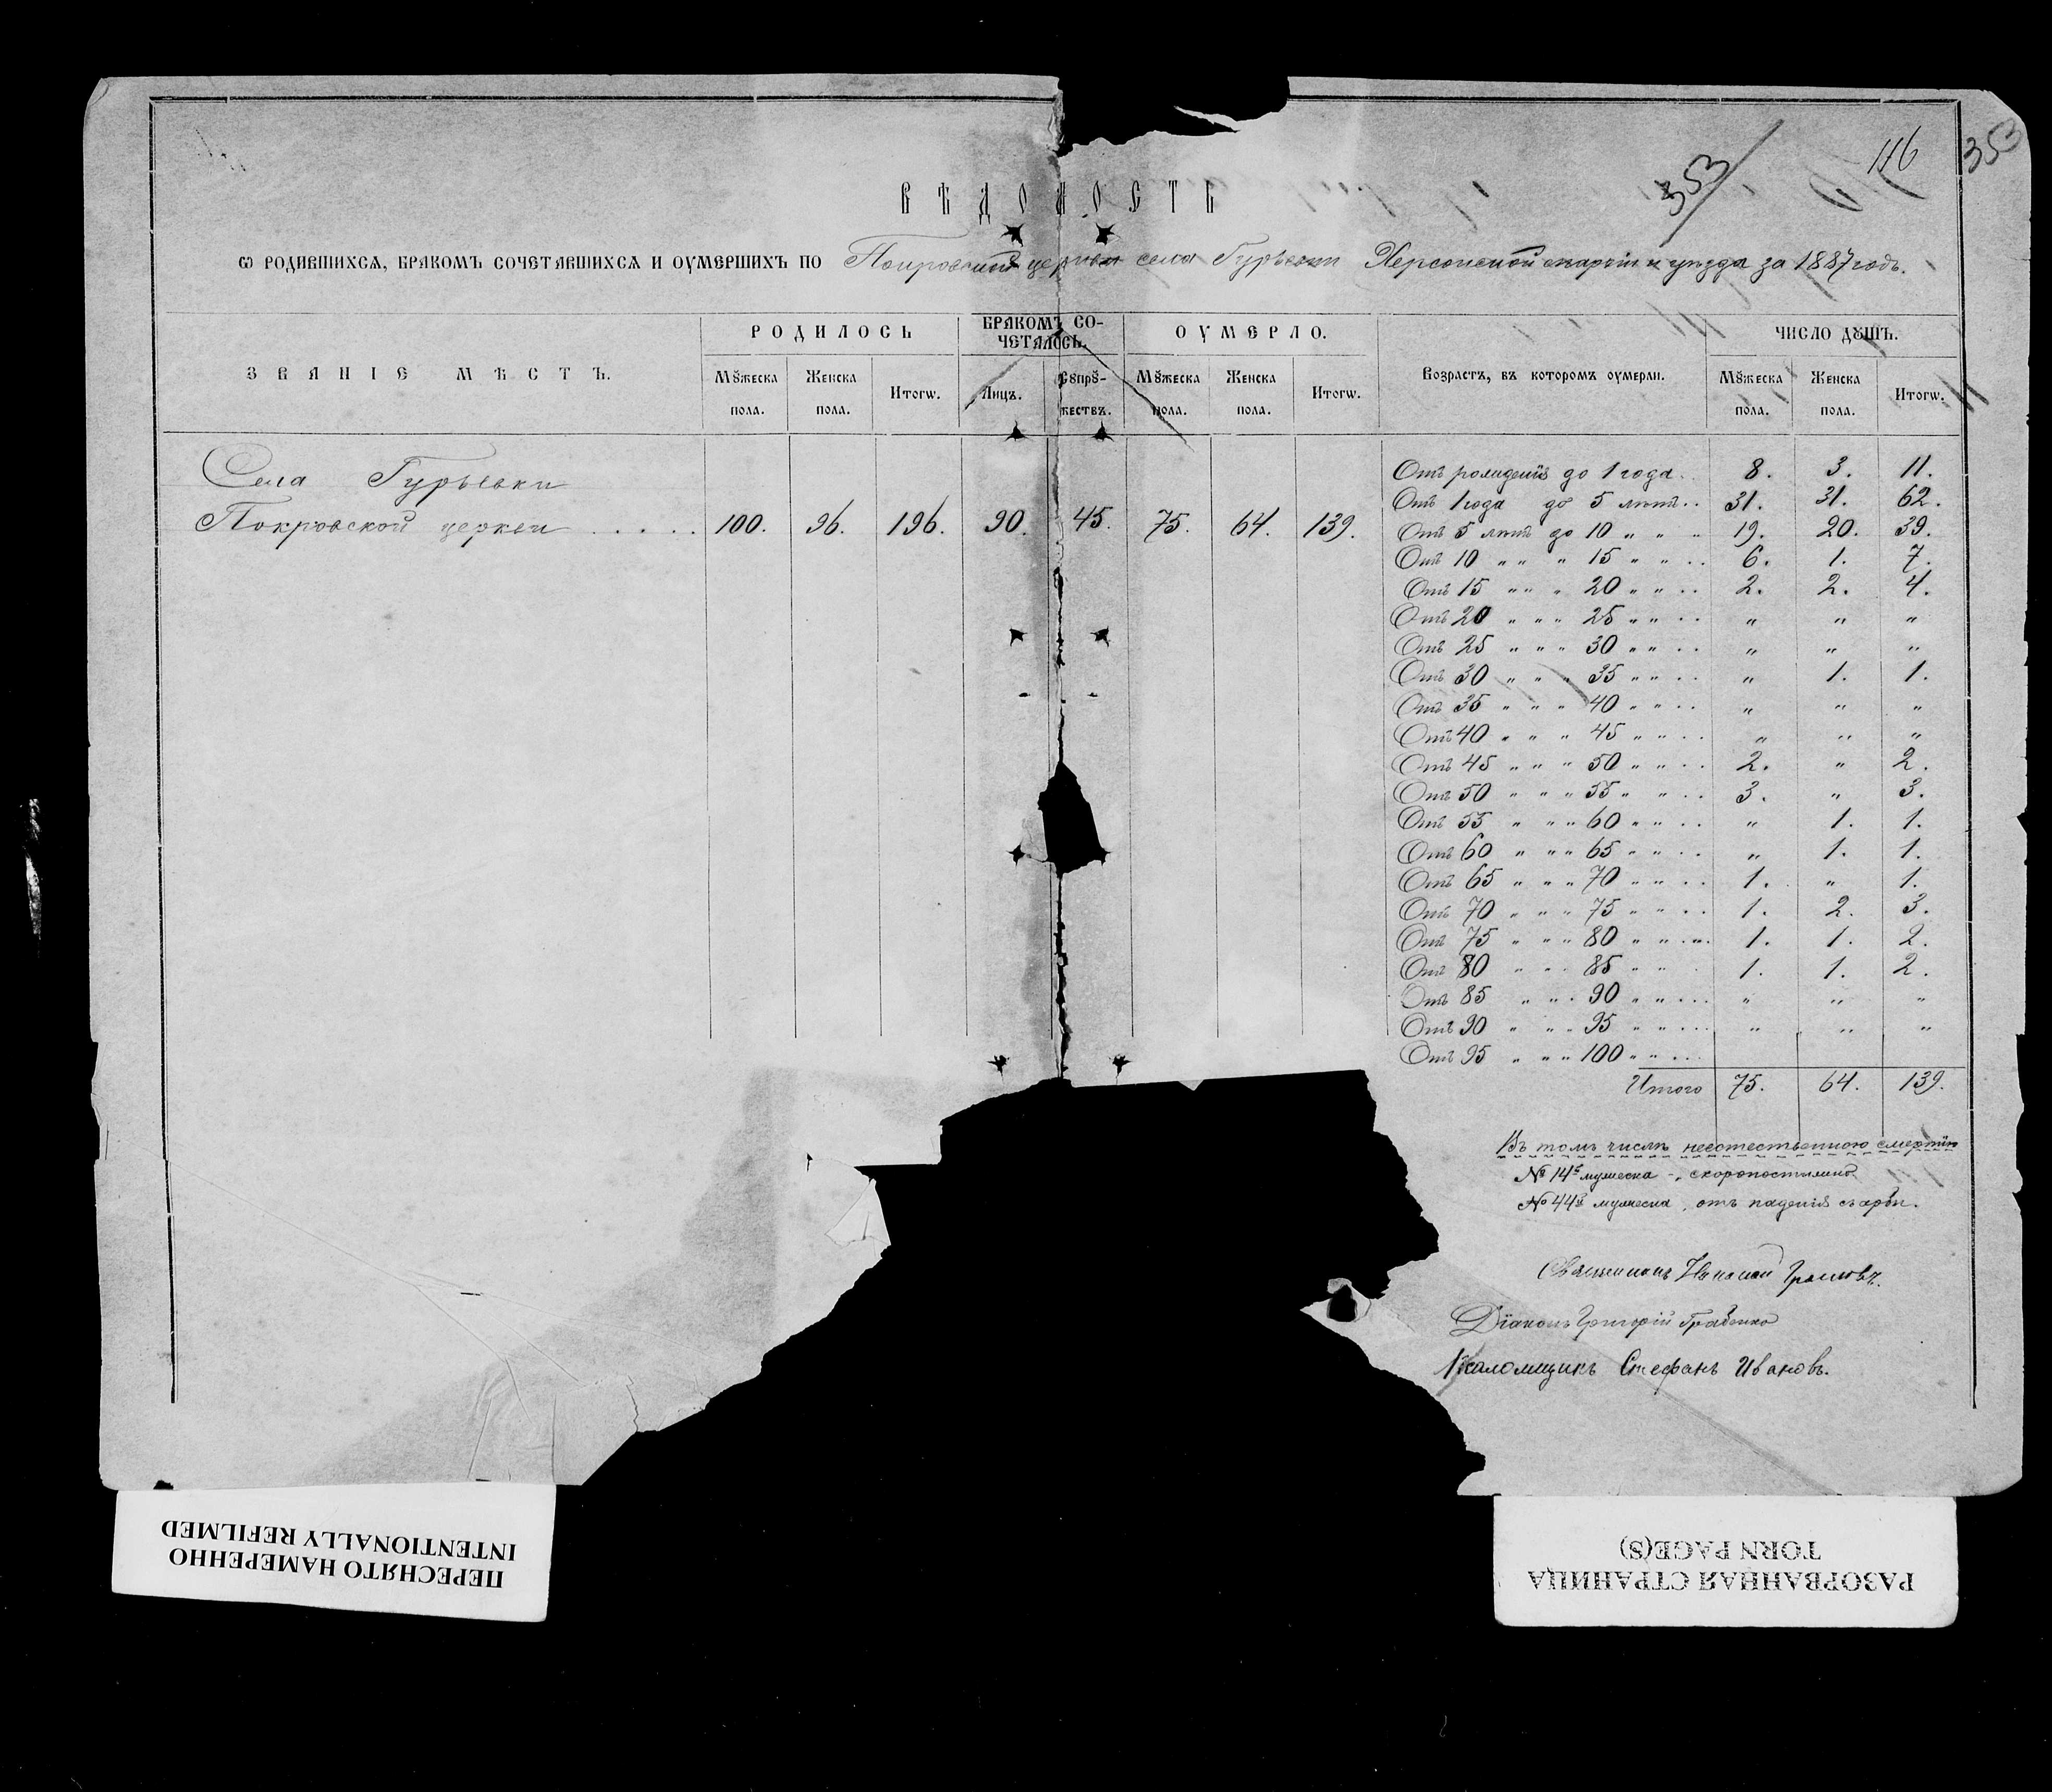 353
116
353
ВѢДОМОСТЬ
Ѡ РОДИВШИХСѦ, БРАКОМЪ СОЧЕТАВШИХСѦ И ОУМЕРШИХЪ ПО Покровской церкви села Гурьевки Херсонской епархіи и уѣзда за 1887 годъ.
ЗВАНІЕ МѢСТЪ. РОДИЛОСЬ БРАКОМЪ СО-ЧЕТАЛОСЬ. ОУМЕРЛО. Возрастъ, въ которомъ оумерли. ЧИСЛО ДꙊШЪ.
Мꙋжеска пола. Женска пола. Итогѡ. Лицъ. Сꙋпрꙋ-жествъ. Мꙋжеска пола. Женска пола. Итогѡ. Мꙋжеска пола. Женска пола. Итогѡ.
Села Гурьевки
Покровской церкви . . . . . 100. 96. 196. 90. 45. 75. 64. 139.
Отъ рожденія до 1 года. . 8. 3. 11.
Отъ 1 года до 5 лѣтъ . . 31. 31. 62.
Отъ 5 лѣтъ до 10 „ „ „ 19. 20. 39.
Отъ 10 „ „ „ 15 „ „ . . 6. 1. 7.
Отъ 15 „ „ „ 20 „ „ . . 2. 2. 4.
Отъ 20 „ „ „ 25 „ „ . . „ „ „
Отъ 25 „ „ „ 30 „ „ . . „ „ „
Отъ 30 „ „ „ 35 „ „ . . „ 1. 1.
Отъ 35 „ „ „ 40 „ „ . . „ „ „
Отъ 40 „ „ „ 45 „ „ . . „ „ „
Отъ 45 „ „ „ 50 „ „ . . 2. „ 2.
Отъ 50 „ „ „ 55 „ „ . . 3. „ 3.
Отъ 55 „ „ „ 60 „ „ . . „ 1. 1.
Отъ 60 „ „ „ 65 „ „ . . „ 1. 1.
Отъ 65 „ „ „ 70 „ „ . . 1. „ 1.
Отъ 70 „ „ „ 75 „ „ . . 1. 2. 3.
Отъ 75 „ „ „ 80 „ „ . . 1. 1. 2.
Отъ 80 „ „ „ 85 „ „ . 1. 1. 2.
Отъ 85 „ „ „ 90 „ „ . . . „ „ „
Отъ 90 „ „ „ 95 „ „ . . . „ „ „
Отъ 95 „ „ „ 100 „ „ . . .
Итого 75. 64. 139.
Въ томъ числѣ неестественною смертію
№ 14й мужеска - скоропостижно
№ 44й мужеска, отъ паденія съ арбы.
Священникъ
Діаконъ Григорій
Псаломщикъ Стефанъ Ивановъ.
ПЕРЕСНЯТО НАМЕРЕННО
INTENTIONALLY REFILMED
РАЗОРВАННАЯ СТРАНИЦА
TORN PAGE(S)